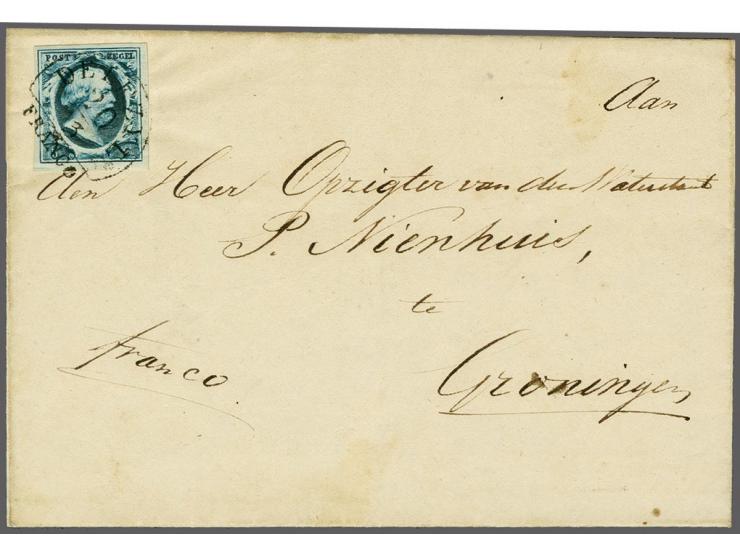 POST ZEGEL
FRANCO
Aan
den Heer Opzigter van den Waterstaat
P. Nienhuis,
te
franco
Groningen